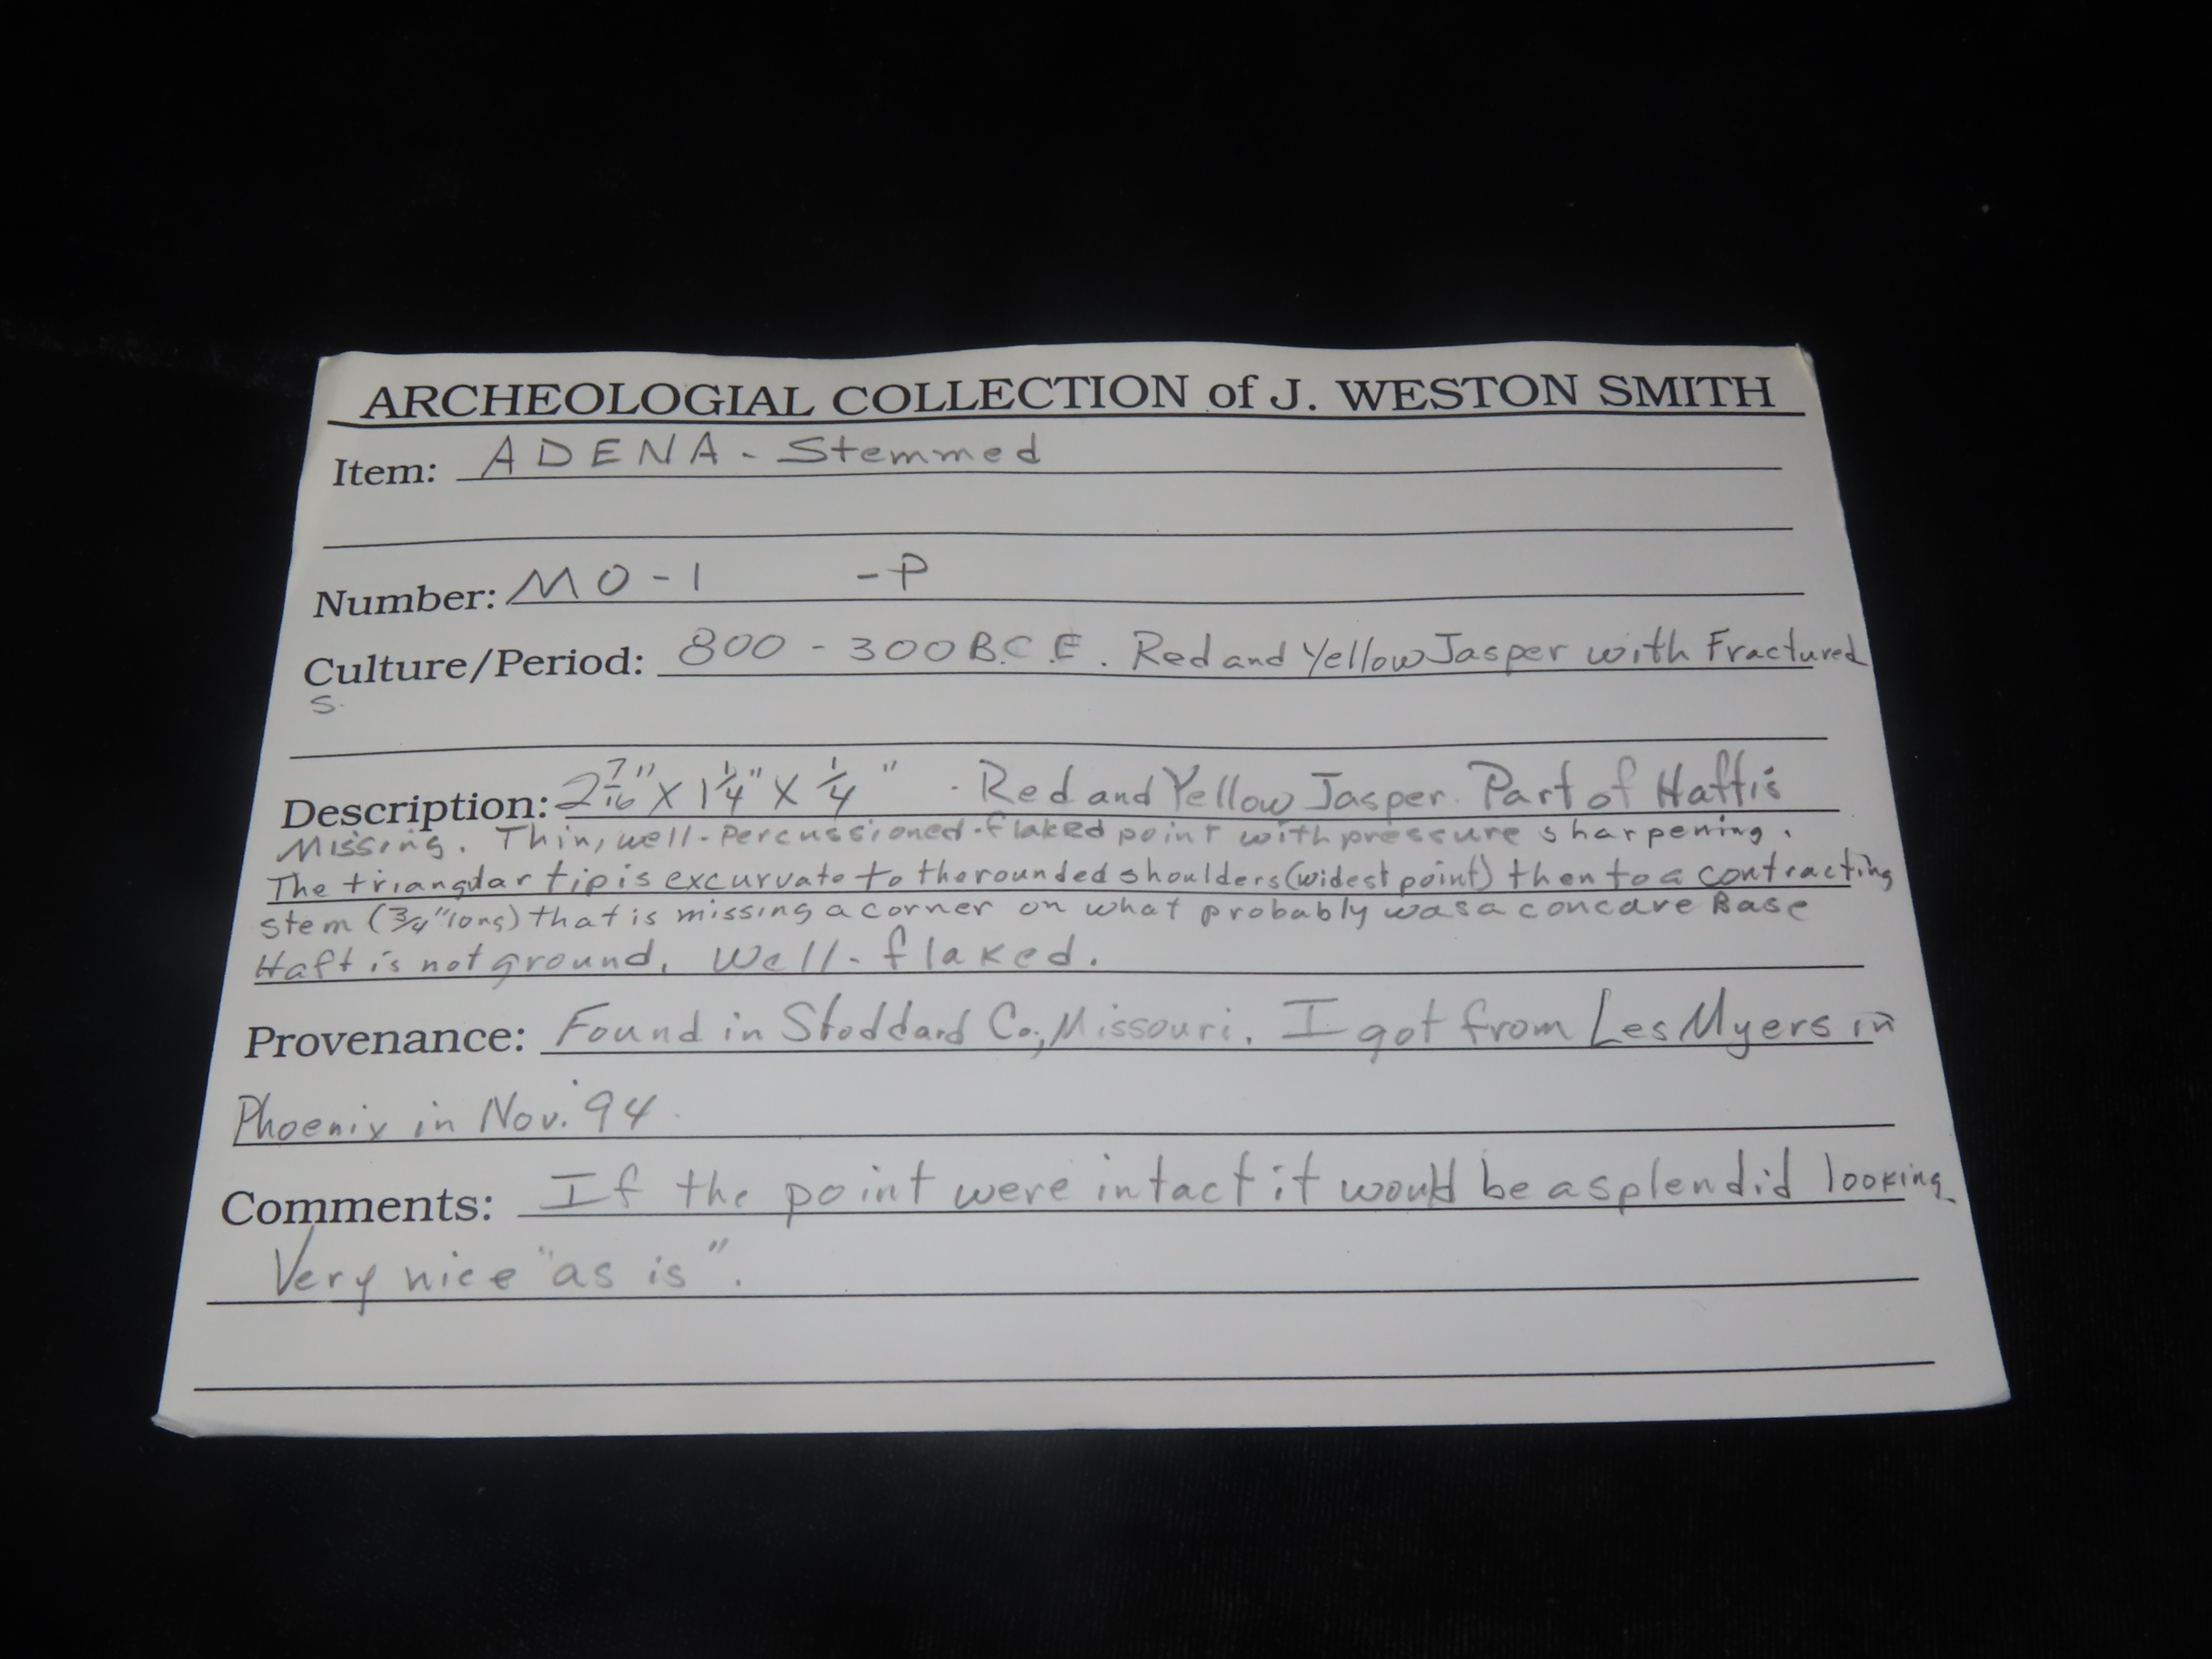 ARCHEOLOGIAL COLLECTION of J. WESTON SMITH
Item: ADENA - Stemmed
Number: MO-1 -P
Culture/Period: 800 - 300 B.C.E. Red and Yellow Jasper with Fractured
S.
Description: 2 7/16" X 1 1/4" X 1/4" - Red and Yellow Jasper. Part of Haft is
Missing. Thin, well-percussioned-flaked point with pressure sharpening.
The triangular tip is excurvate to the rounded shoulders (widest point) then to a contracting
stem (3/4" long) that is missing a corner on what probably was a concave Base
Haft is not ground. Well-flaked.
Provenance: Found in Stoddard Co., Missouri. I got from Les Myers in
Phoenix in Nov. '94
Comments: If the point were intact it would be a splendid looking
Very nice "as is".